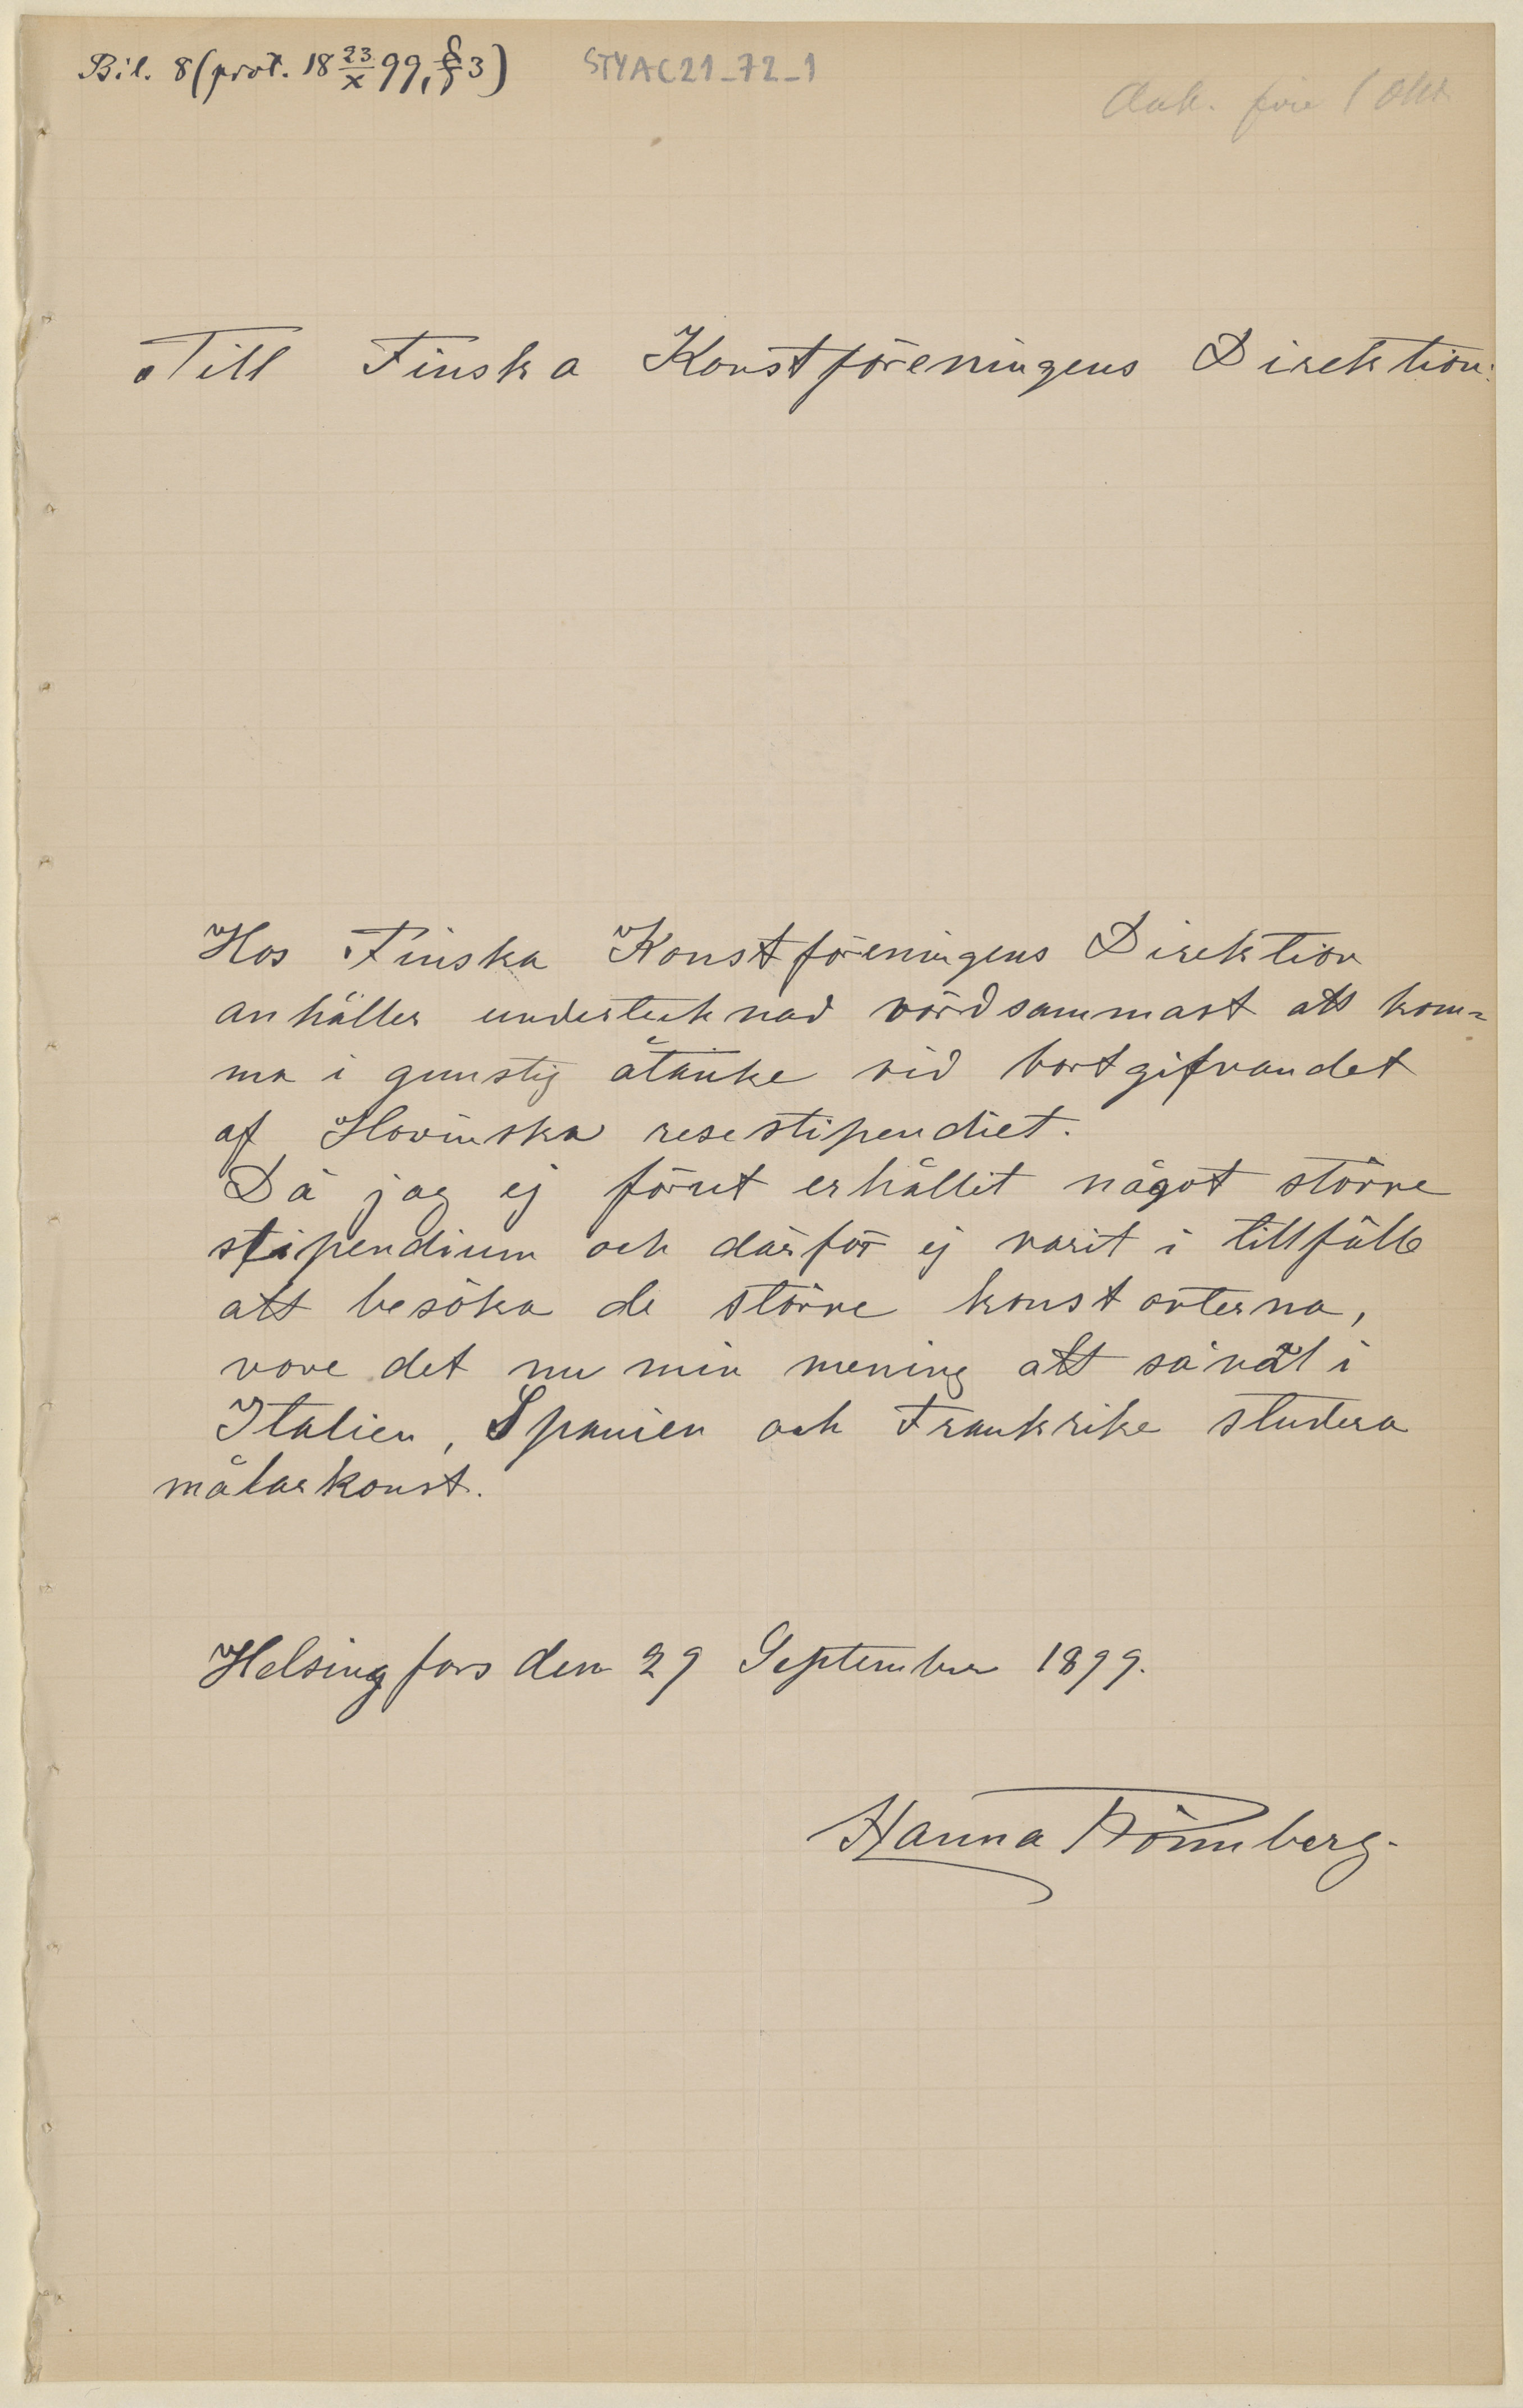 Bil. 8 (prot. 18 23/X 99, § 3) STYAC21_72_1
Ank. före 1 Okt
Till Finska Konstföreningens Direktion.
Hos Finska Konstföreningens Direktion
anhåller undertecknad vördsammast att kom=
ma i gunstig åtanke vid bortgifvandet
af Hovinska resestipendiet.
Då jag ej förut erhållit något större
stipendium och därför ej varit i tillfälle
att besöka de större konstorterna,
vore det nu min mening att såväl i
Italien, Spanien och Frankrike studera
målarkonst.
Helsingfors den 29 September 1899.
Hanna Rönnberg.